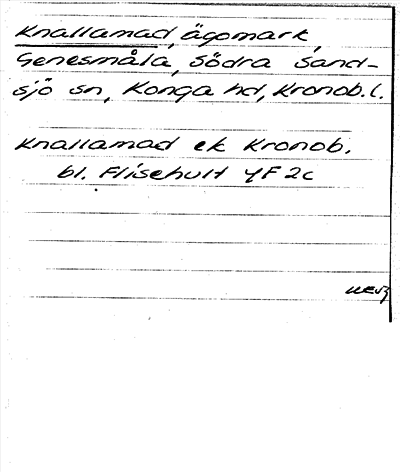 Knallamad, ägomark,
Genesmåla, Södra Sand-
sjö sn, Konga hd, Kronob.l.
Knallamad ek Kronob.
bl. Flisehult 4F 2c